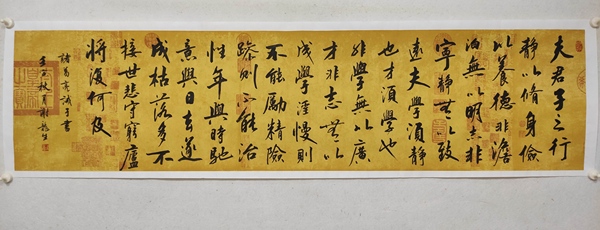 夫君子之行
静以脩身儉
以養德非澹
泊無以明志非
寧静無以致
遠夫學須静
也才須學也
非學無以廣
才非志無以
成學淫慢則
不能勵精險
躁則不能治
性年與時馳
意與日去遂
成枯落多不
接世悲守窮廬
將復何及
諸葛亮誡子書